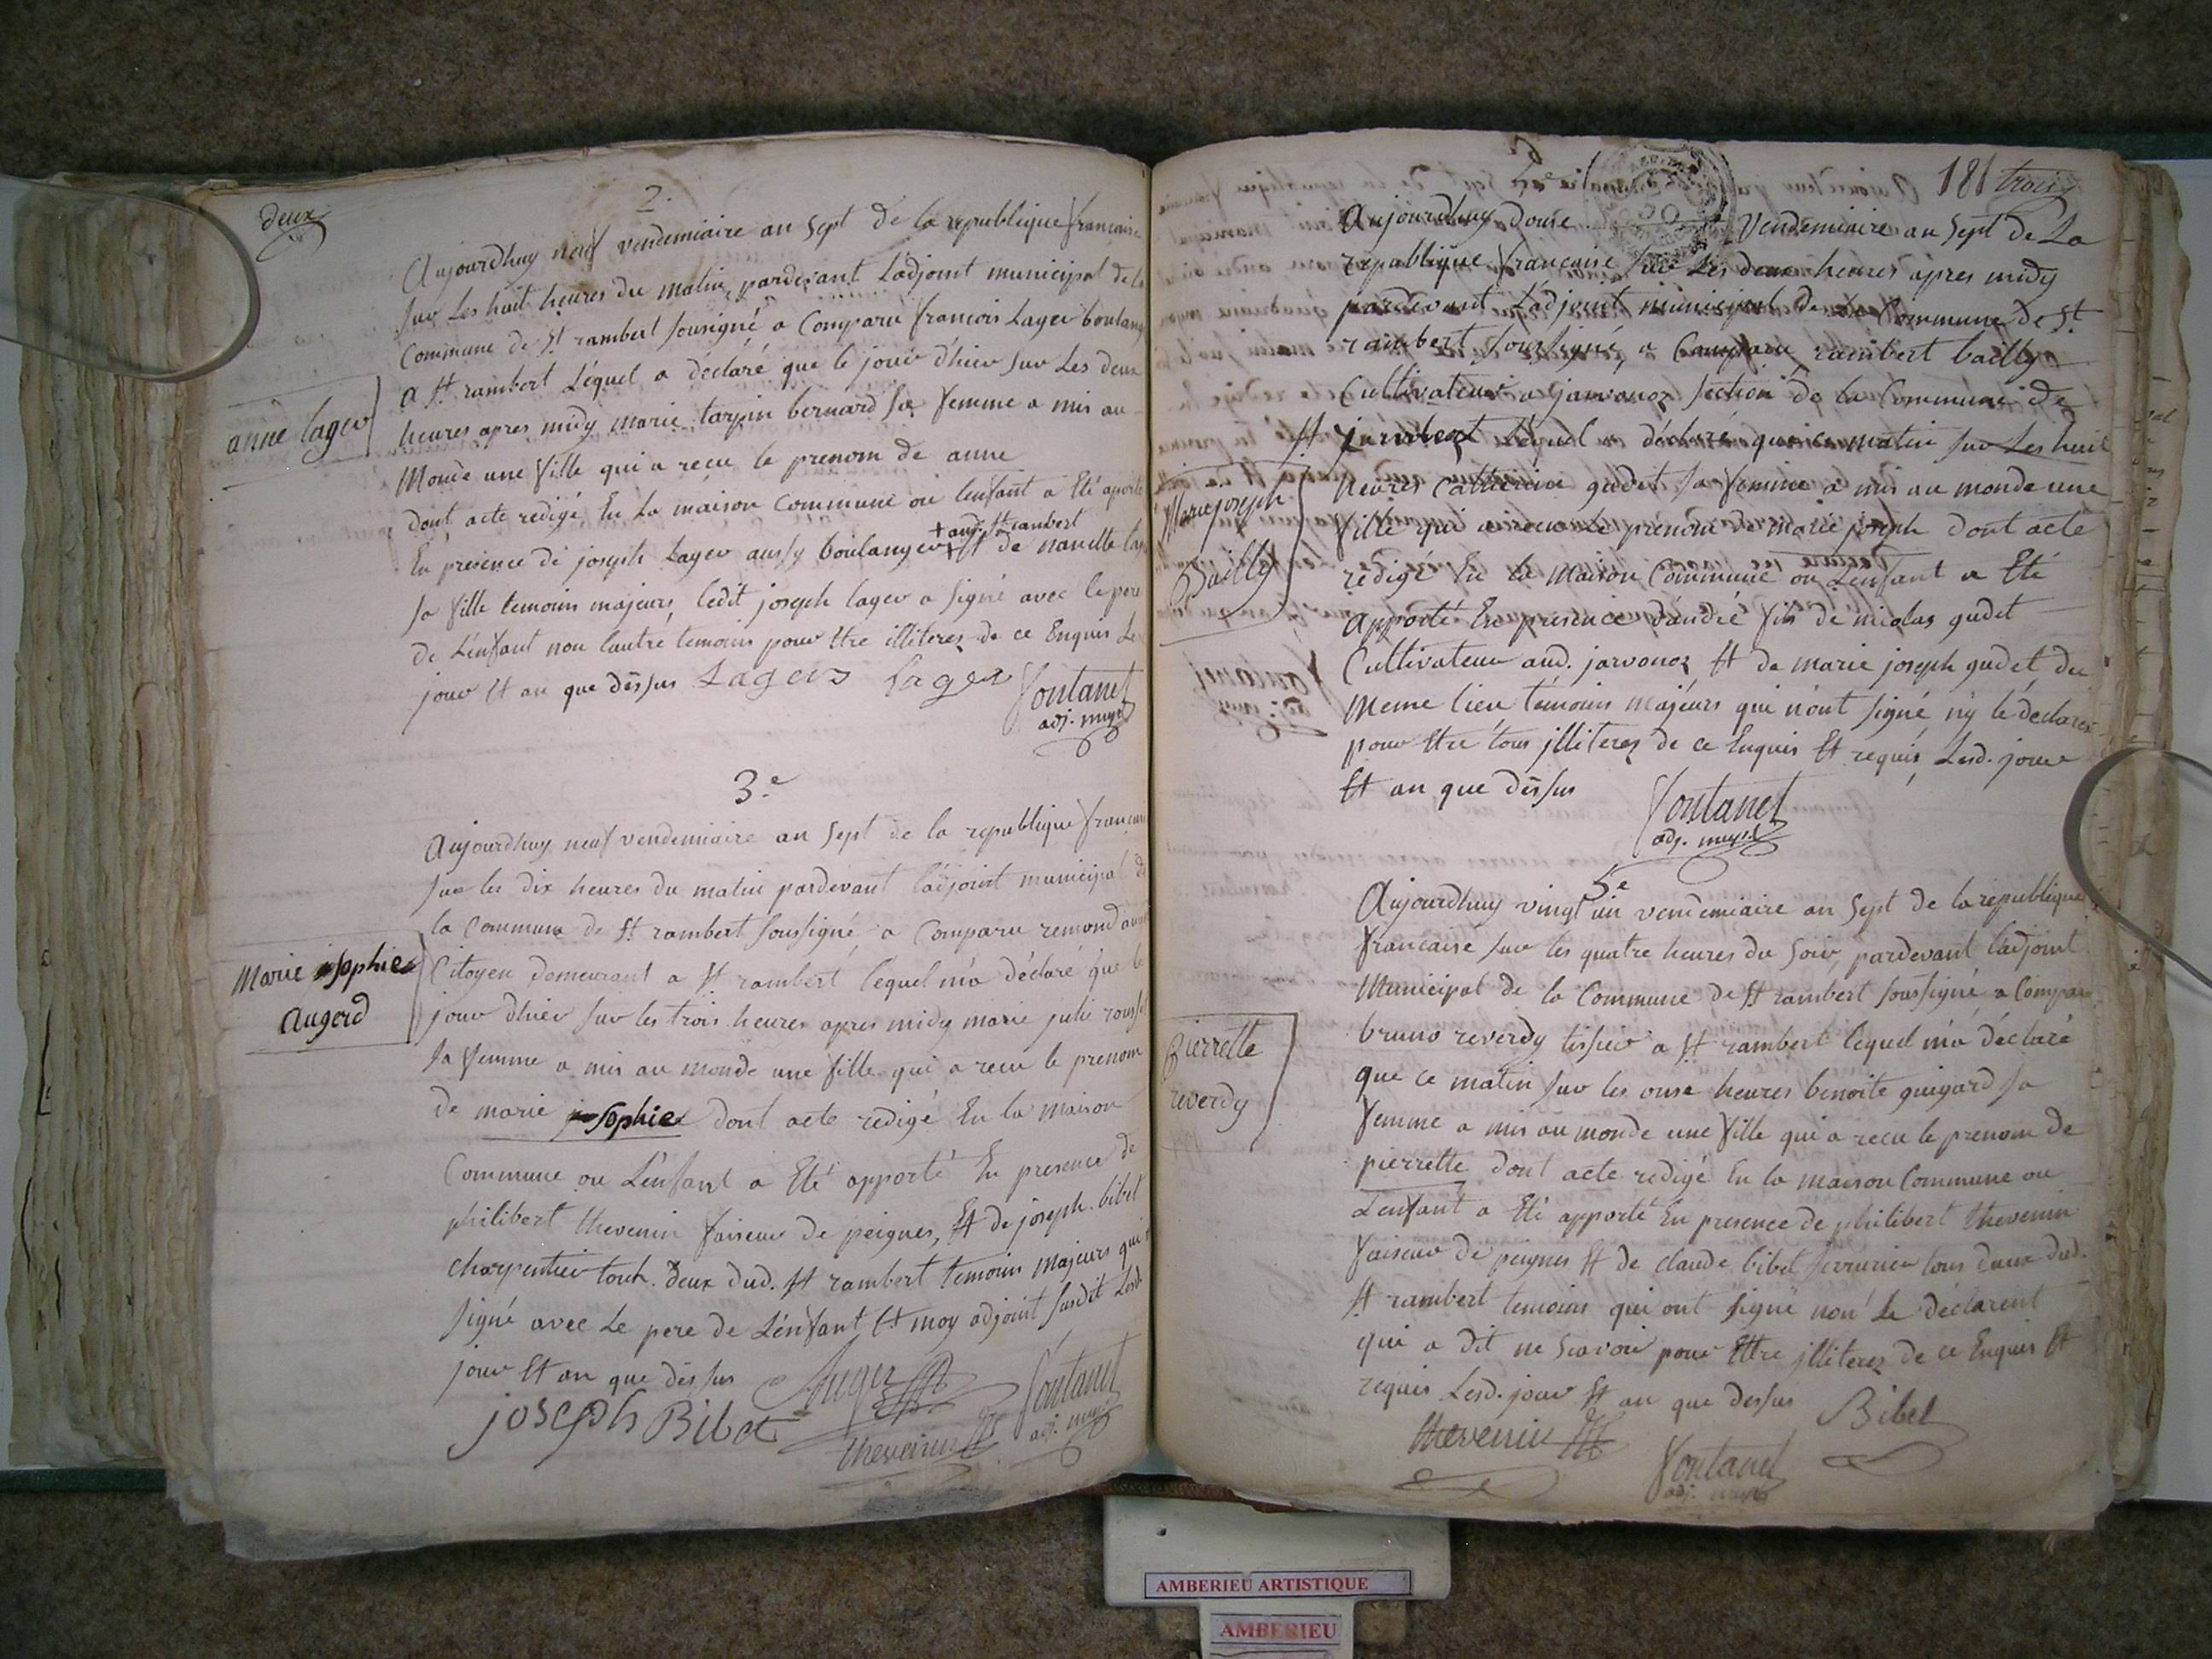 deux
2.
Aujourdhuy neuf vendemiaire an sept de la republique francaise
sur Les huit heures du matin, pardevant L'adjoint municipal de la
Commune de St rambert sousigné a Comparu francois Lager boulang
a St rambert Léquel a déclaré que le jour d'hier sur Les deux
heures apres midy marie tarpin bernard sa femme a mis au
Monde une fille qui a recu le prenom de anne
anne lager
dont acte redigé En La maison Commune ou lenfant a Eté aporté
+ aud. St rambert
En présence de joseph Lager aussy boulanger + Et de nanette
sa fille temoins majeurs, ledit joseph lager a signé avec le pere
de L'enfant non lautre temoins pour Etre illiterez de ce Enquis Le
jour Et an que dessus Lagers Lager
Fontanet
adj. mupl
3.e
Aujourdhuy neuf vendemiaire an sept de la republique francaise
sur les dix heures du matin pardevant l'adjoint municipal de
la Commune de St rambert soussigné a Comparu remond
Marie Sophie
Augerd
Citoyen demeurant a St rambert léquel m'a déclaré que le
jour dhier sur les trois heures apres midy marie julie
sa femme a mis au monde une fille qui a recu le prenom
de marie Sophie dont acte redigé En la maison
Commune ou L'enfant a Eté apporté En presence de
philibert thevenin faiseur de peignes, Et de joseph bibet
charpentier tout. deux dud. St rambert temoins majeurs qui
signé avec Le pere de L'énfant Et moy adjoint susdit Lesd.
jour Et an que dessus
Auger
Fontanet
adj. mupl
joseph Bibet
thevenin
181 trois
Aujourdhuy douse Vendemiaire an sept de La
republique francaise sur Les deux heures apres midy
pardevant L'adjoint municipal de La Commune de St
rambert soussigné, a Comparu rambert bailly
Cultivateur a jarvonoz section de la Commune de
St rambert Léquel a déclaré que ce matin sur Les huit
Marie joseph
Bailly
heures Catherine gudet sa femme a mis au monde une
fille qui a recu Le prenom de marie joseph dont acte
redigé En La Maison Commune ou L'enfant a Eté
apporté En presence d'andré fils de nicolas gudet
Cultivateur aud. jarvonoz Et de marie joseph gudet du
meme lieu temoins majeurs qui n'ont signé ny lé déclarent
pour Etre tous illiterez de ce Enquis Et requis Lesd. jour
Et an que dessus
Fontanet
adj. mupl
5e
Aujourdhuy vingt un vendemiaire an sept de la republique
francaise sur les quatre heures du soir, pardevant l'adjoint
Municipal de la Commune de St rambert soussigné a Comparu
Pierrette
reverdy
bruno reverdy tissier a St rambert léquel m'a déclaré
que ce matin sur les onse heures benoite guigard sa
femme a mis au monde une fille qui a recu le prenom de
pierrette dont acte redigé En la maison Commune ou
L'enfant a Eté apporté En presence de philibert thevenin
faiseur de peignes Et de claude bibet serrurier tous deux dud.
St rambert temoins qui ont signé non Le déclarent
qui a dit ne scavoir pour Etre illiterez de ce Enquis Et
requis Lesd. jour Et an que dessus
Bibet
thevenin
Fontanet
adj. mupl
AMBERIEU ARTISTIQUE
AMBERIEU